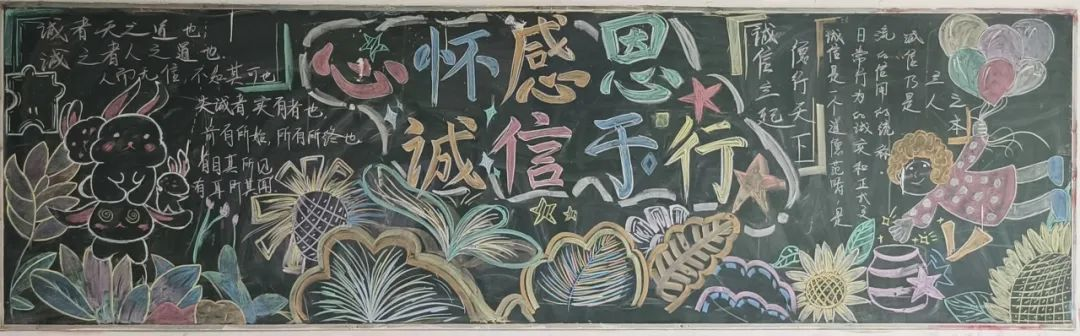 诚者天之道也;
诚之者人之道也
人而无信 不知其可也
夫诚者实有者也
前有所始,所有所终也
有目其所见
有耳所其闻
心怀感恩
誠信于行
诚信之纪
行天下
诚信是一个道德范畴,是
日常行为的诚实和正式交
流的信用的统称.
诚信乃是
立人之本